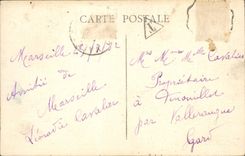 CARTE POSTALE
T
Marseille
Amitié de
Marseille
Léonada Cavalier
Mr Mme Mlle Cavalier
Propriétaire
à
par Valleraugue
Gard